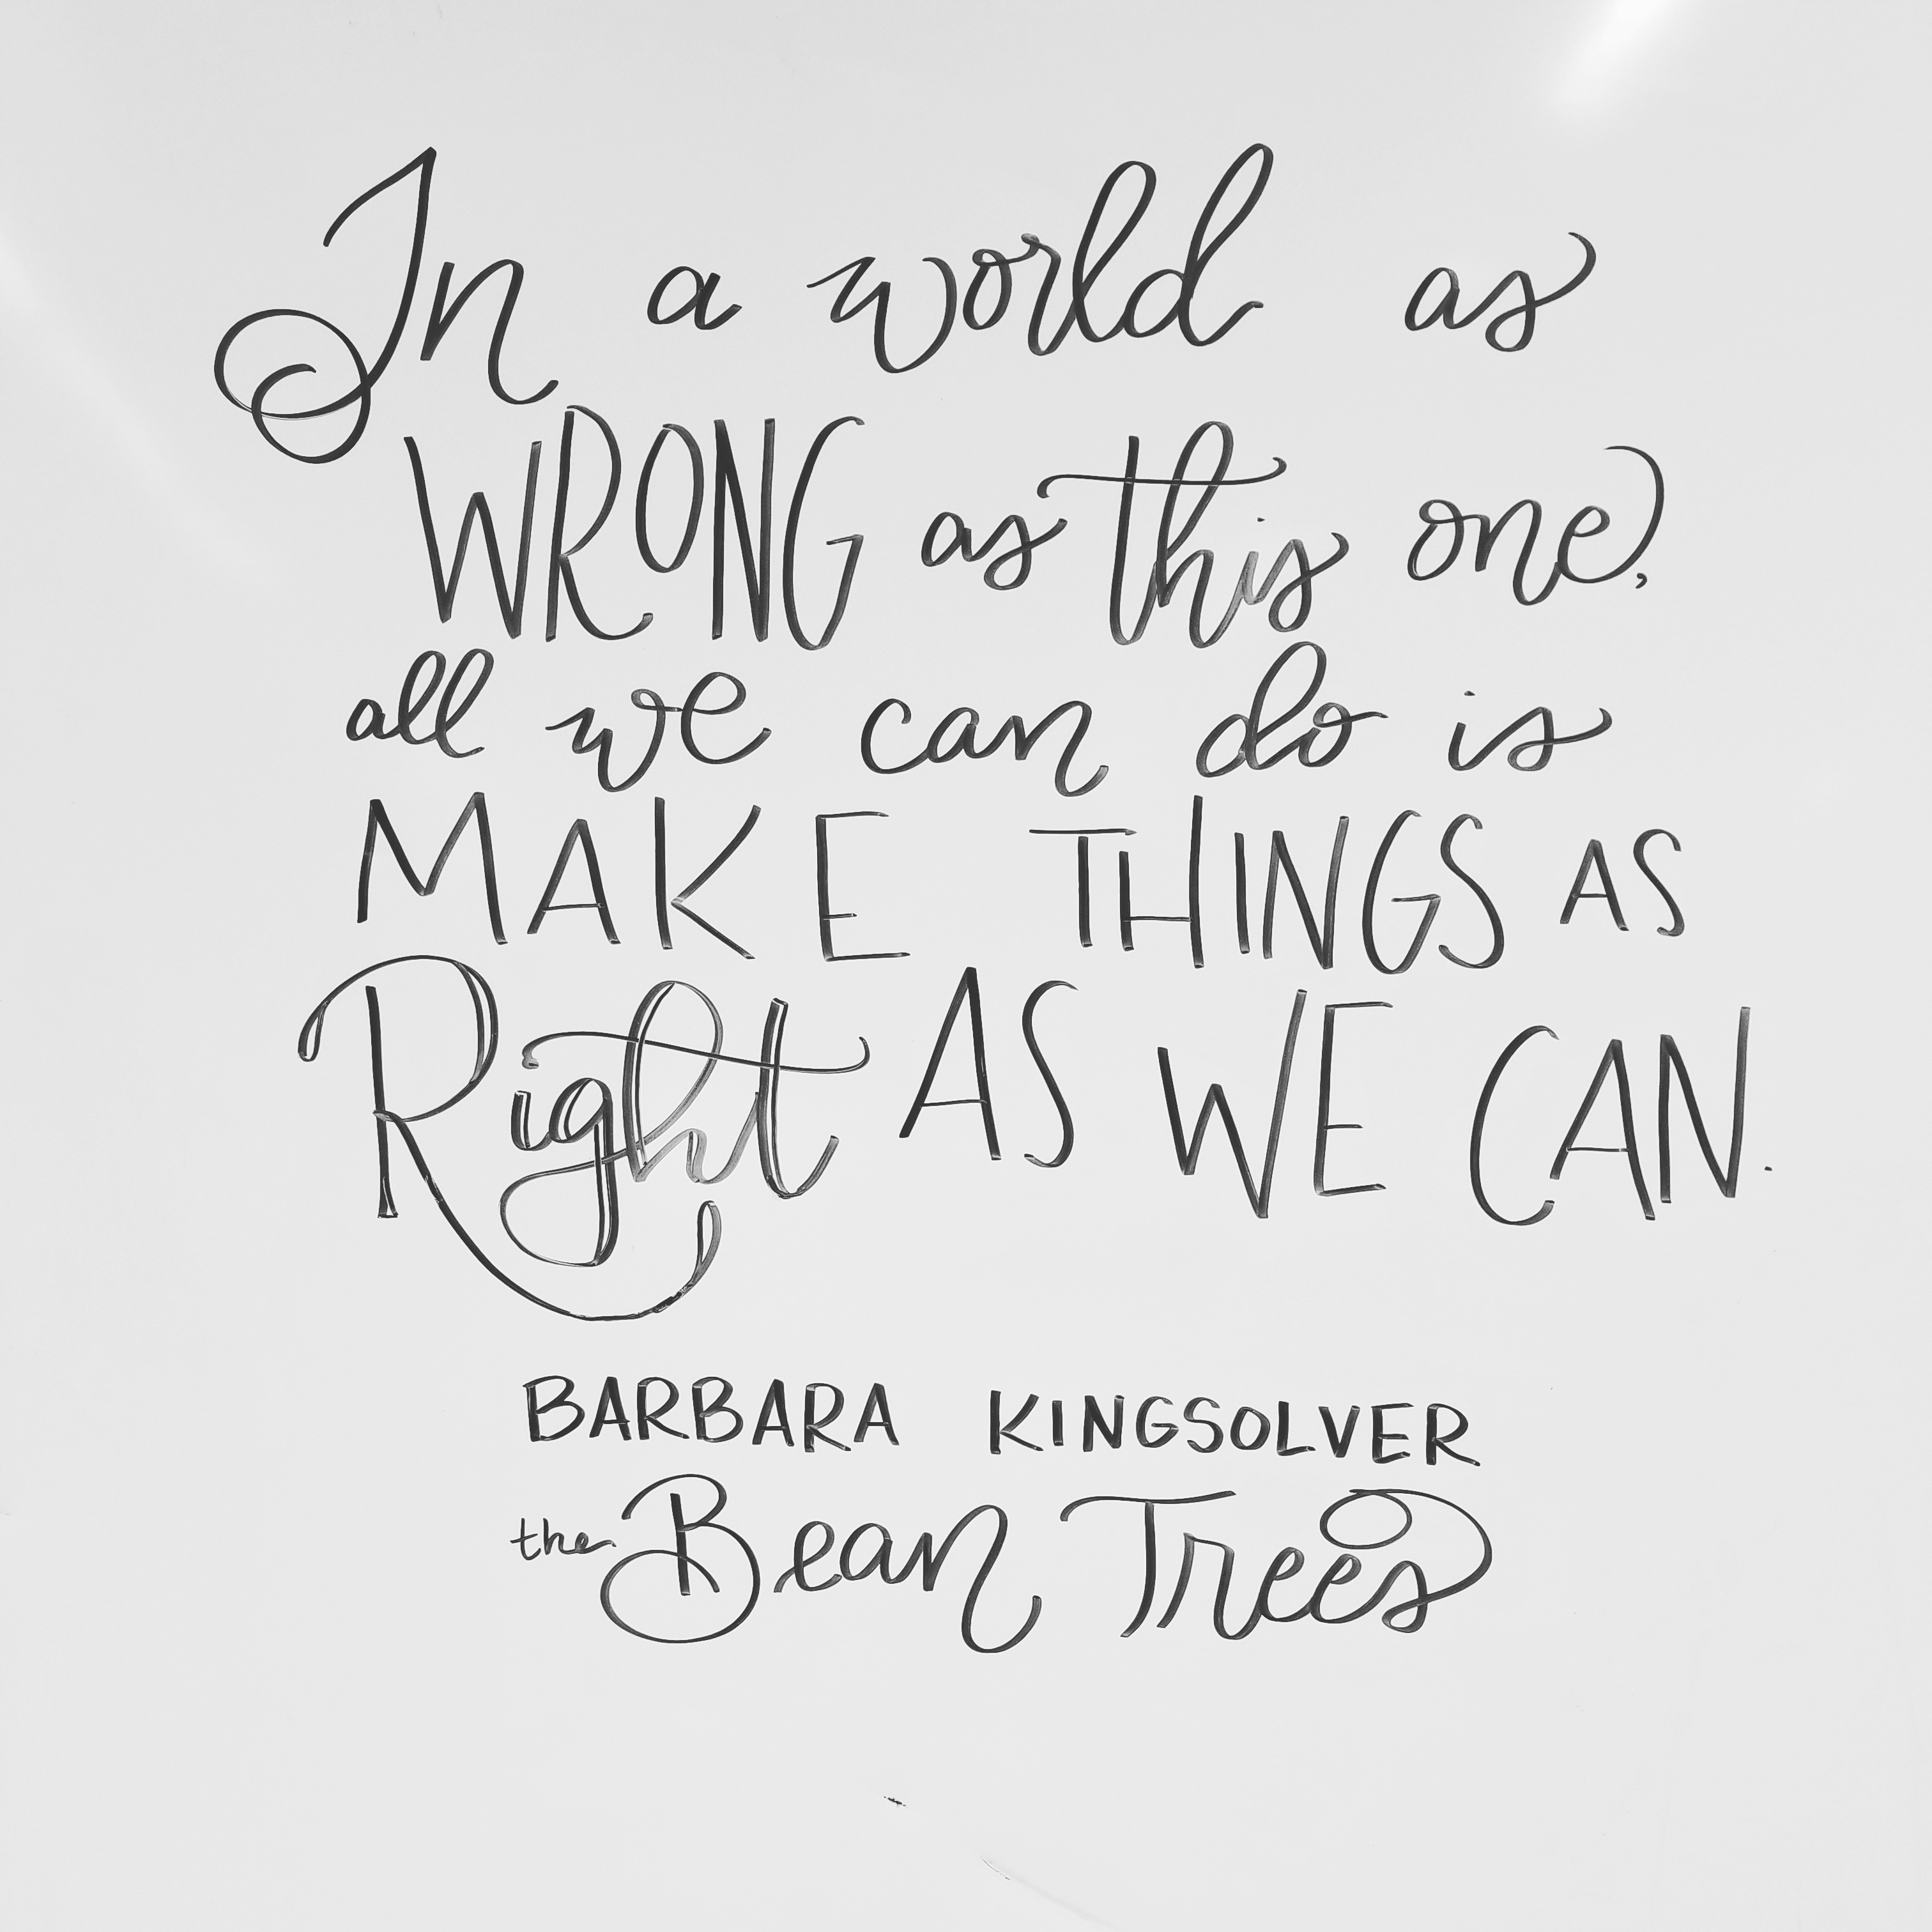 In a world as
WRONG as this one,
all we can do is
MAKE THINGS AS
Right AS WE CAN.
BARBARA KINGSOLVER
the Bean Trees